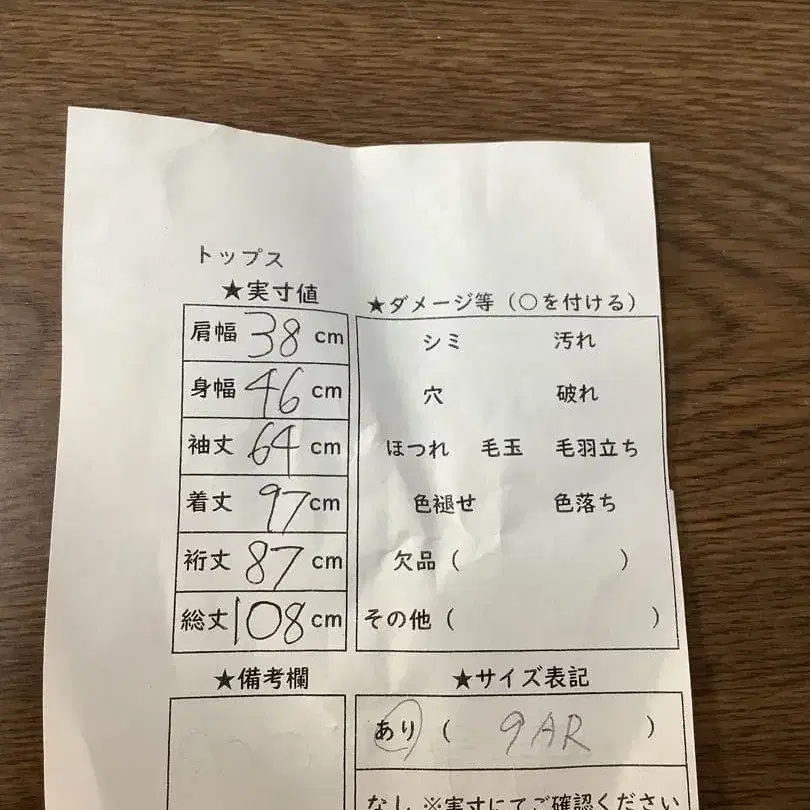 トップス
★実寸値
肩幅 38 cm
身幅 46 cm
袖丈 64 cm
着丈 97 cm
裄丈 87 cm
総丈 108 cm
★ダメージ等（〇を付ける）
シミ 汚れ
穴 破れ
ほつれ 毛玉 毛羽立ち
色褪せ 色落ち
欠品（ ）
その他（ ）
★備考欄
★サイズ表記
あり（ 9AR ）
なし ※実寸にてご確認ください